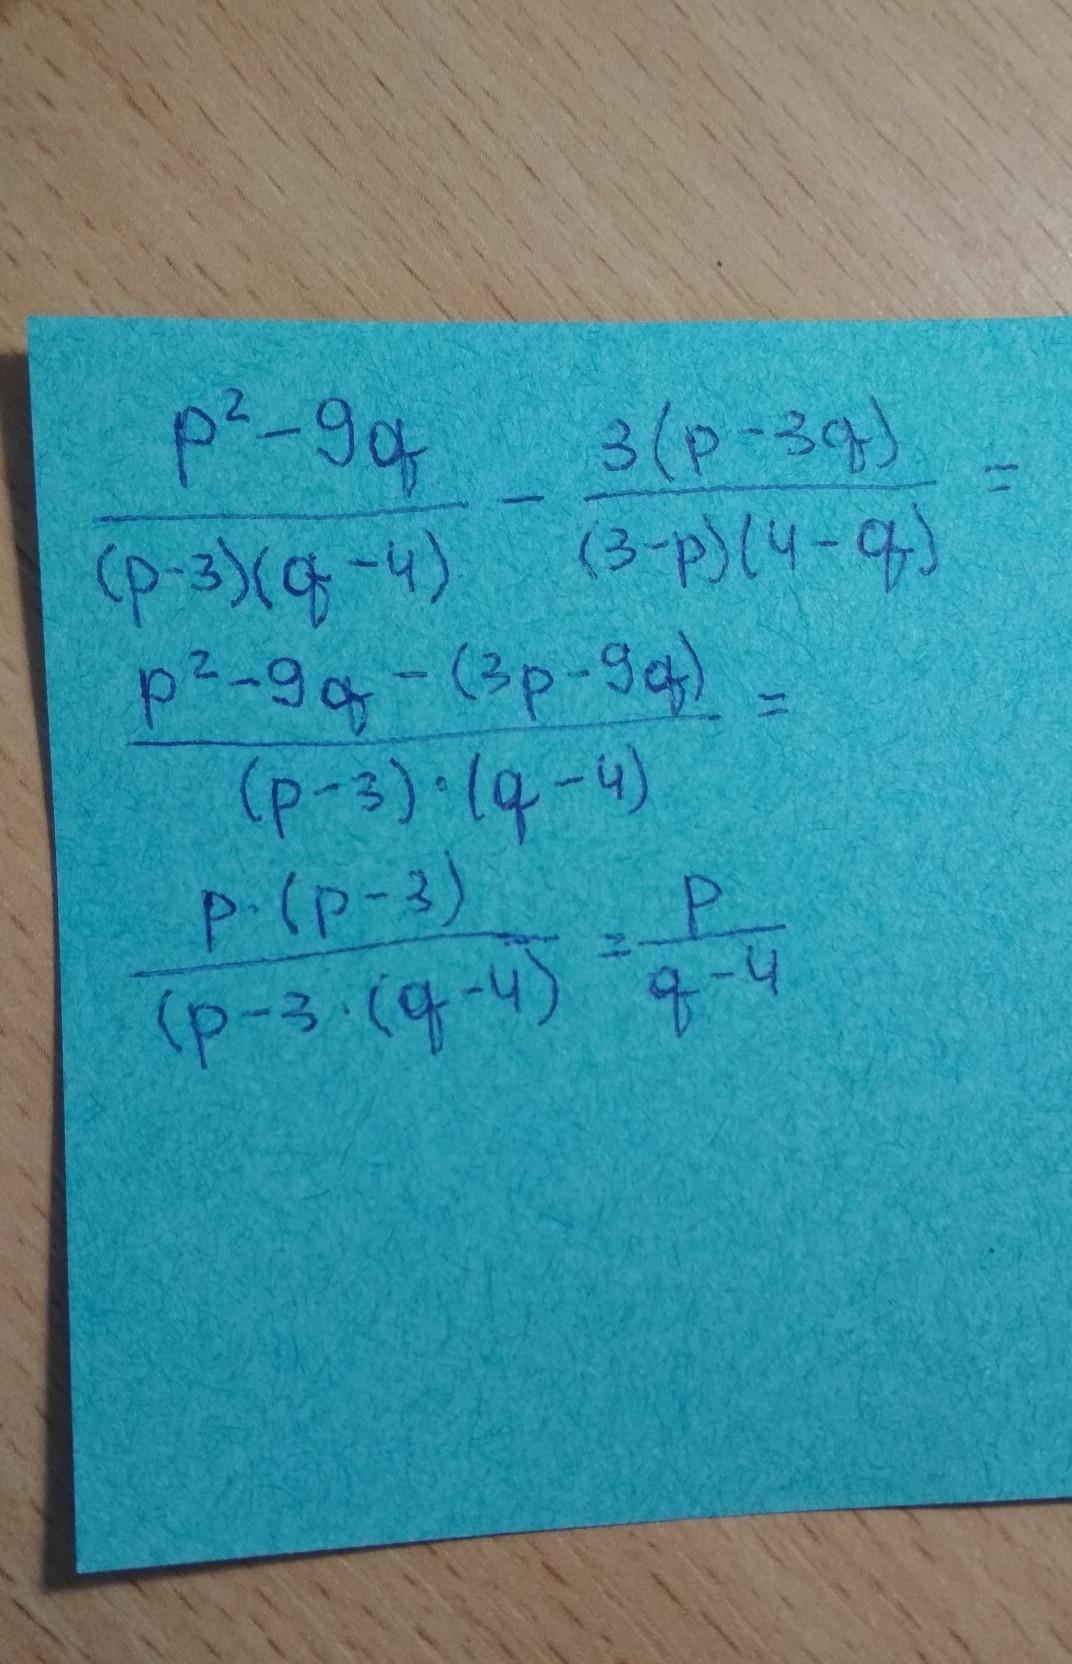 p² - 9q / (p-3)(q-4) - 3(p-3q) / (3-p)(4-q) =
p² - 9q - (3p-9q) / (p-3)·(q-4) =
p·(p-3) / (p-3·(q-4) = p / q-4